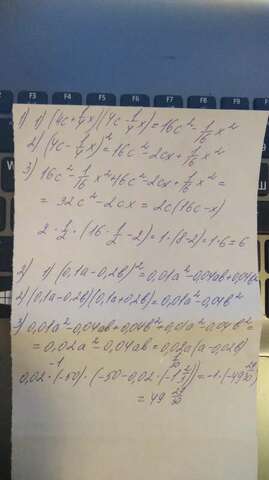 1) 1) (4c+1/4x)(4c-1/4x)=16c²-1/16x²
2) (4c-1/4x)²=16c²-2cx+1/16x²
3) 16c²-1/16x²+16c²-2cx+1/16x²=
=32c²-2cx=2c(16c-x)
2·1/2·(16·1/2-2)=1·(8-2)=1·6=6
2) 1) (0,1a-0,2b)²=0,01a²-0,04ab+0,04b²
2) (0,1a-0,2b)(0,1a+0,2b)=0,01a²-0,04b²
3) 0,01a²-0,04ab+0,04b²+0,01a²-0,04b²=
=0,02a²-0,04ab=0,02a(a-0,02b)
0,02·(-50)·(-50-0,02·(-1
=-1·(-49
=49